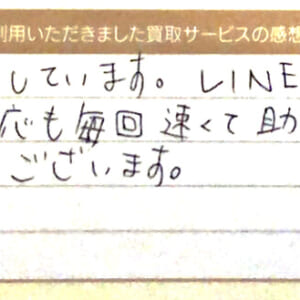 利用いただきました買取サービスの感想
しています。LINE
応も毎回速くて助
ございます。